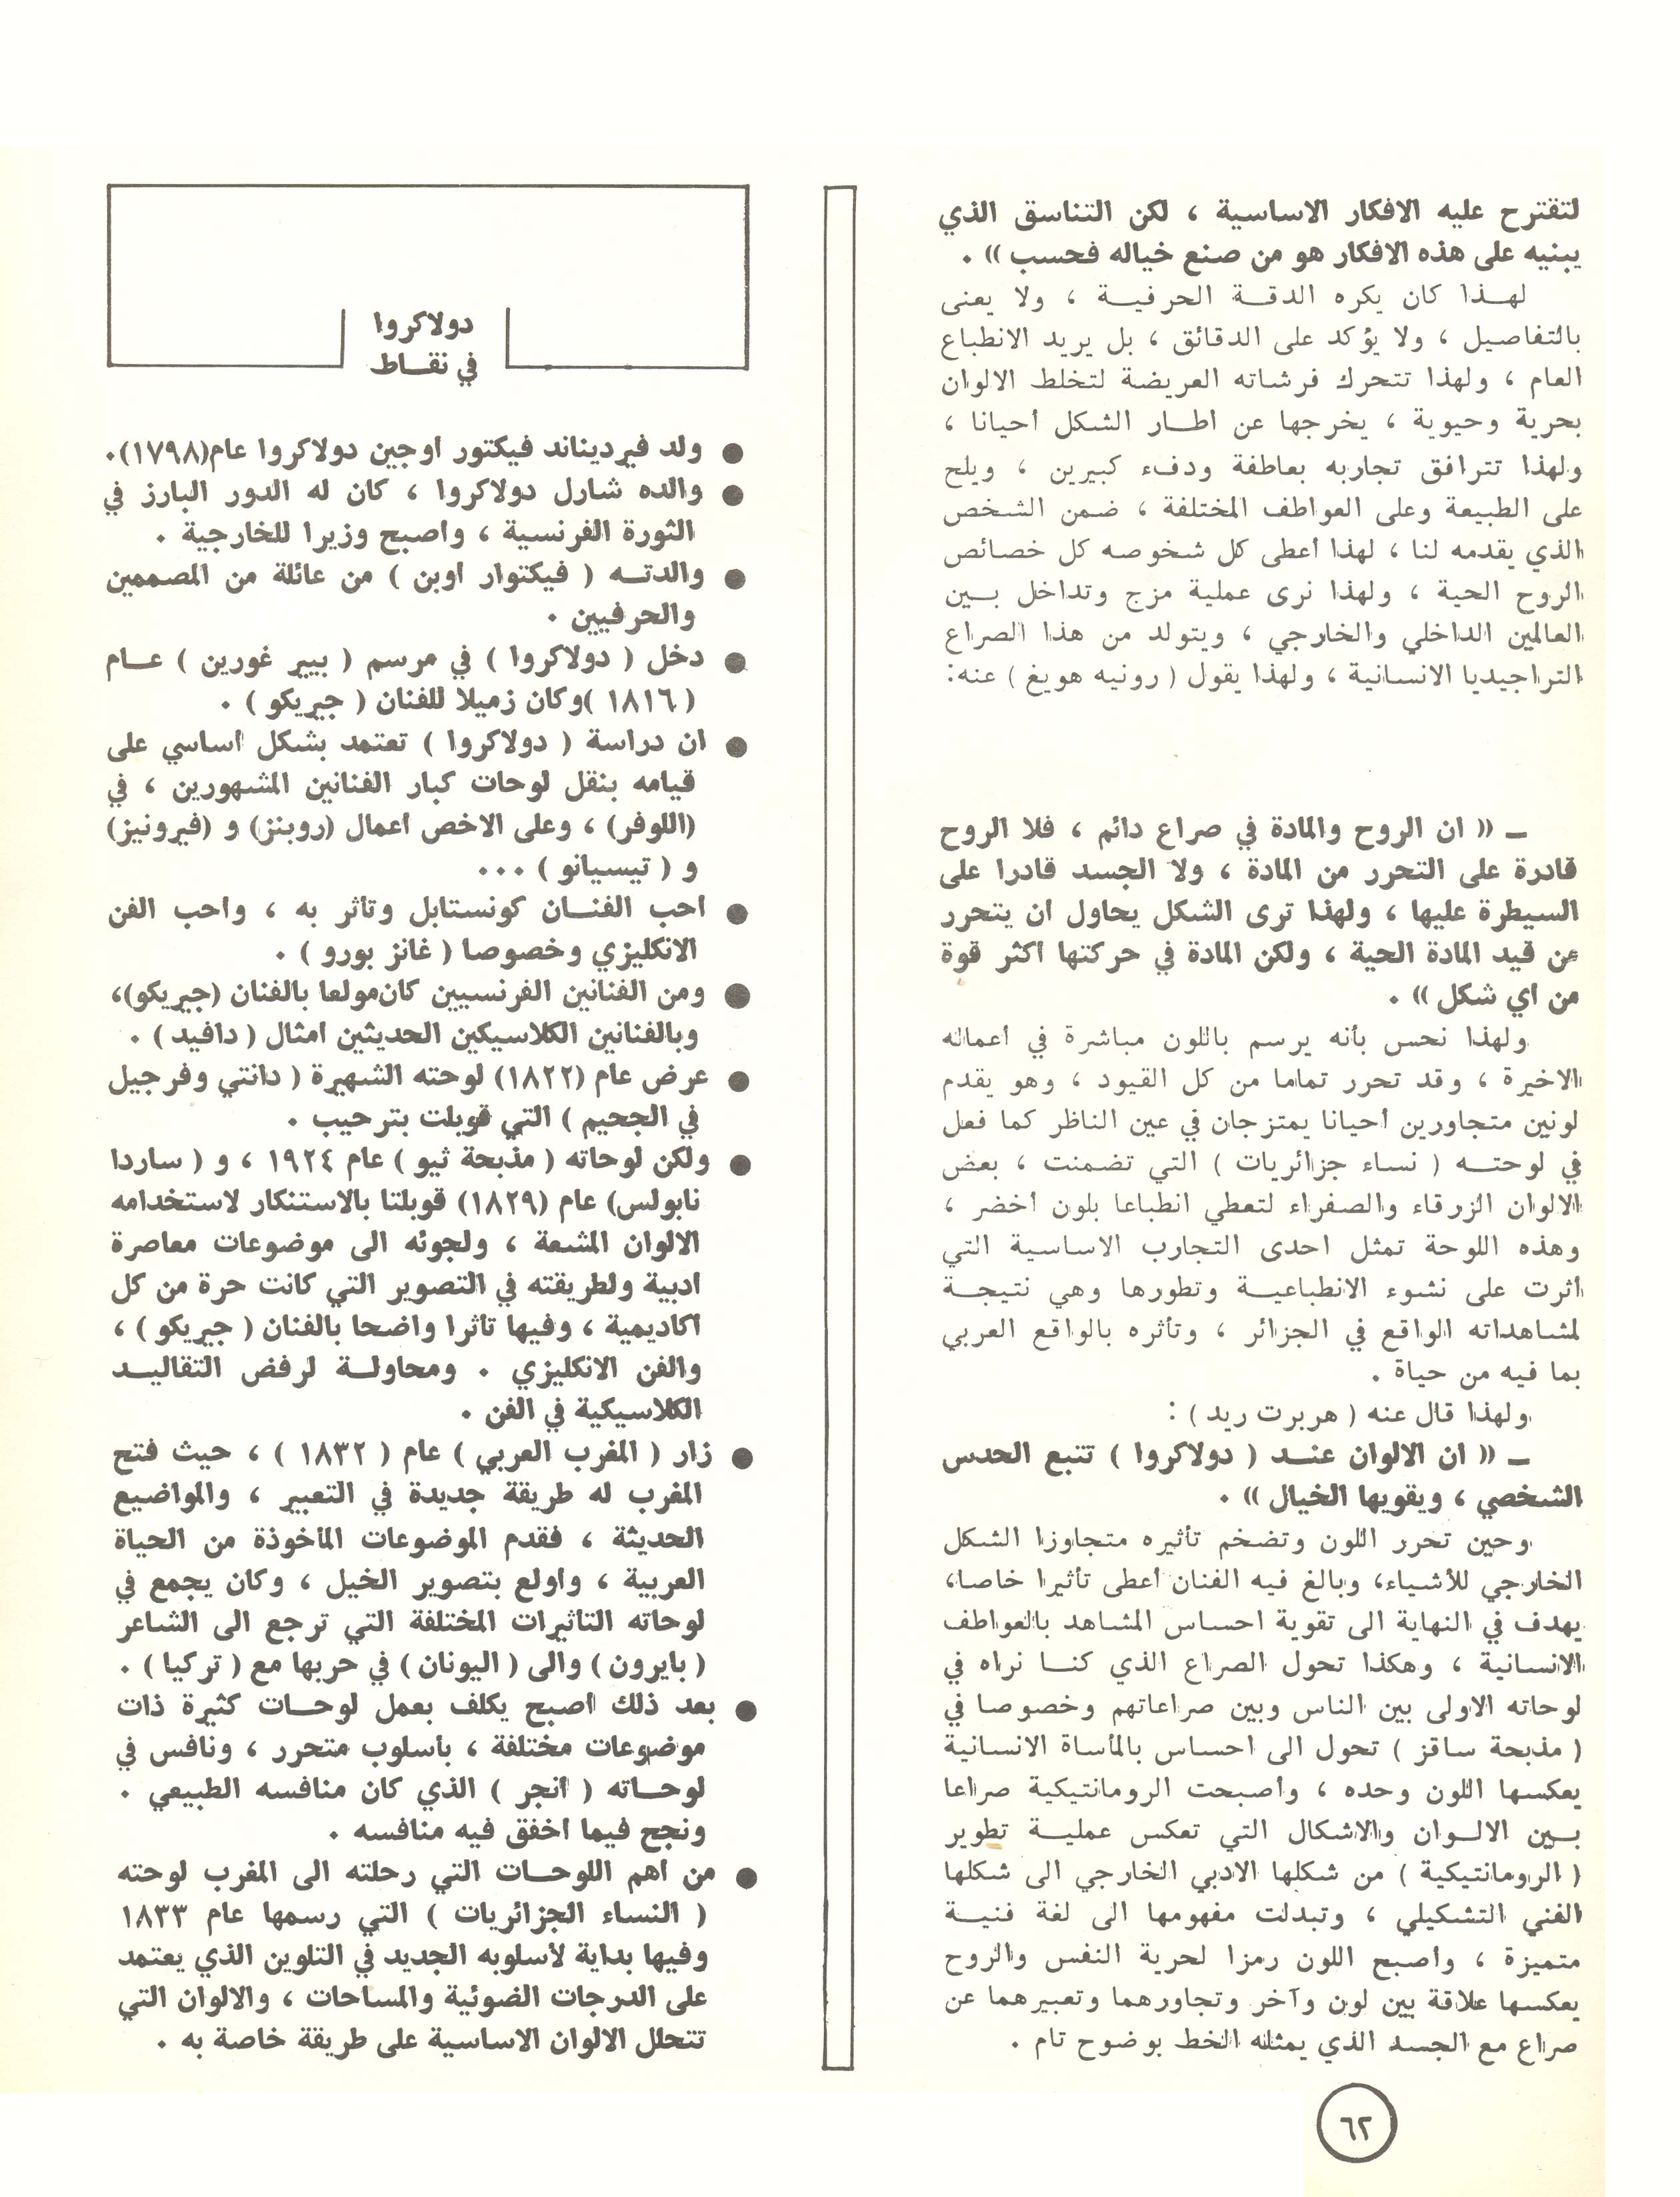 لتقترح عليه الافكار الاساسية ، لكن التناسق الذي
يبنيه على هذه الافكار هو من صنع خياله فحسب )) .
لهــذا كان يكره الدقـة الحرفيـة ، ولا يعنى
بالتفاصيل ، ولا يؤكد على الدقائق ، بل يريد الانطباع
العام ، ولهذا تتحرك فرشاته العريضة لتخلط الالوان
بحرية وحيوية ، يخرجها عن اطــار الشكل أحيانا ،
ولهذا تترافق تجاربه بعاطفة ودفء كبيرين ، ويلح
على الطبيعة وعلى العواطف المختلفة ، ضمن الشخص
الذي يقدمه لنا ، لهذا أعطى كل شخوصه كل خصائص
الروح الحية ، ولهذا نرى عملية مزج وتداخل بــين
العالمين الداخلي والخارجي ، ويتولد من هذا الصراع
التراجيديا الانسانية ، ولهذا يقول ( رونيه هويغ ) عنه:
ــ (( ان الروح والمادة في صراع دائم ، فلا الروح
قادرة على التحرر من المادة ، ولا الجسد قادرا على
السيطرة عليها ، ولهذا ترى الشكل يحاول ان يتحرر
عن قيد المادة الحية ، ولكن المادة في حركتها أكثر قوة
من أي شكل )) .
ولهذا نحس بأنه يرسم باللون مباشرة في أعماله
الاخيرة ، وقد تحرر تماما من كل القيود ، وهو يقدم
لونين متجاورين أحيانا يمتزجان في عين الناظر كما فعل
في لوحتــه ( نساء جزائريات ) التي تضمنت ، بعض
الالوان الزرقاء والصفراء لتعطي انطباعا بلون أخضر ،
وهذه اللوحة تمثل احدى التجارب الاساسية التي
أثرت على نشوء الانطباعيــة وتطورها وهي نتيجــة
لمشاهداته الواقع في الجزائر ، وتأثره بالواقع العربي
بما فيه من حياة .
ولهذا قال عنه ( هربرت ريد ) :
ــ (( ان الالوان عنــد ( دولاكروا ) تتبع الحدس
الشخصي ، ويقويها الخيال )) .
وحين تحرر اللون وتضخم تأثيره متجاوزا الشكل
الخارجي للأشياء، وبالغ فيه الفنان أعطى تأثيرا خاصا،
يهدف في النهاية الى تقوية احساس المشاهد بالعواطف
الانسانية ، وهكذا تحول الصراع الذي كنــا نراه في
لوحاته الاولى بين الناس وبين صراعاتهم وخصوصا في
( مذبحة ساقز ) تحول الى احساس بالمأساة الانسانية
يعكسها اللون وحده ، وأصبحت الرومانتيكية صراعا
بــين الالــوان والاشكال التي تعكس عمليــة تطوير
( الرومانتيكية ) من شكلها الادبي الخارجي الى شكلها
الفني التشكيلي ، وتبدلت مفهومها الى لغة فنيــة
متميزة ، وأصبح اللون رمزا لحرية النفس والروح
يعكسها علاقة بين لون وآخر وتجاورهما وتعبيرهما عن
صراع مع الجسد الذي يمثله الخط بوضوح تام .
دولاكروا
في نقــاط
● ولد فيرديناند فيكتور أوجين دولاكروا عام(١٧٩٨).
● والده شارل دولاكروا ، كان له الدور البارز في
الثورة الفرنسية ، وأصبح وزيرا للخارجية .
● والدتــه ( فيكتوار أوبن ) من عائلة من المصممين
والحرفيين .
● دخل ( دولاكروا ) في مرسم ( بيير غورين ) عــام
( ١٨١٦ )وكان زميلا للفنان ( جيريكو ) .
● ان دراسة ( دولاكروا ) تعتمد بشكل أساسي على
قيامه بنقل لوحات كبار الفنانين المشهورين ، في
(اللوفر) ، وعلى الاخص أعمال (روبنز) و (فيرونيز)
و ( تيسيانو ) ...
● أحب الفنــان كونستابل وتأثر به ، وأحب الفن
الانكليزي وخصوصا ( غانز بورو ) .
● ومن الفنانين الفرنسيين كان مولعا بالفنان (جيريكو)،
وبالفنانين الكلاسيكين الحديثين أمثال ( دافيد ) .
● عرض عام (١٨٢٢) لوحته الشهيرة ( دانتي وفرجيل
في الجحيم ) التي قوبلت بترحيب .
● ولكن لوحاته ( مذبحة ثيو ) عام ١٩٢٤ ، و ( ساردا
نابولس) عام (١٨٢٩) قوبلتا بالاستنكار لاستخدامه
الالوان المشعة ، ولجوئه الى موضوعات معاصرة
أدبية ولطريقته في التصوير التي كانت حرة من كل
أكاديمية ، وفيها تأثرا واضحا بالفنان ( جيريكو ) ،
والفن الانكليزي . ومحاولــة لرفض التقاليــد
الكلاسيكية في الفن .
● زار ( المغرب العربي ) عام ( ١٨٣٢ ) ، حيث فتح
المغرب له طريقة جديدة في التعبير ، والمواضيع
الحديثة ، فقدم الموضوعات المأخوذة من الحياة
العربية ، وأولع بتصوير الخيل ، وكان يجمع في
لوحاته التأثيرات المختلفة التي ترجع الى الشاعر
( بايرون ) والى ( اليونان ) في حربها مع ( تركيا ) .
● بعد ذلك أصبح يكلف بعمل لوحــات كثيرة ذات
موضوعات مختلفة ، بأسلوب متحرر ، ونافس في
لوحــاته ( أنجر ) الذي كان منافسه الطبيعي .
ونجح فيما أخفق فيه منافسه .
● من أهم اللوحــات التي رحلته الى المغرب لوحته
( النساء الجزائريات ) التي رسمها عام ١٨٣٣
وفيها بداية لأسلوبه الجديد في التلوين الذي يعتمد
على الدرجات الضوئية والمساحات ، والالوان التي
تتحلل الالوان الاساسية على طريقة خاصة به .
٦٢